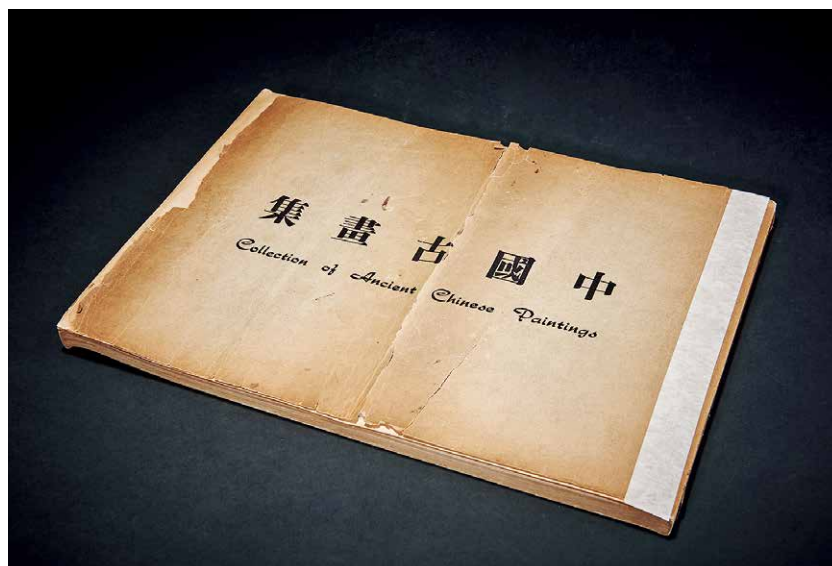 中國古畫集
Collection of Ancient Chinese Paintings